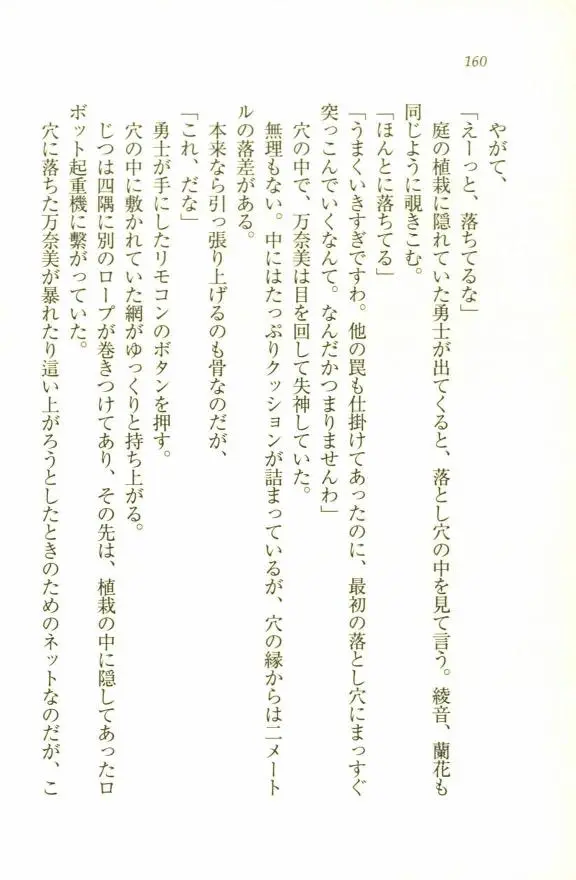 160
やがて、
「えーっと、落ちてるな」
庭の植栽に隠れていた勇士が出てくると、落とし穴の中を見て言う。綾音、蘭花も
同じように覗きこむ。
「ほんとに落ちてる」
「うまくいきすぎですわ。他の罠も仕掛けてあったのに、最初の落とし穴にまっすぐ
突っこんでいくなんて。なんだかつまりませんわ」
穴の中で、万奈美は目を回して失神していた。
無理もない。中にはたっぷりクッションが詰まっているが、穴の縁からは二メート
ルの落差がある。
本来なら引っ張り上げるのも骨なのだが、
「これ、だな」
勇士が手にしたリモコンのボタンを押す。
穴の中に敷かれていた網がゆっくりと持ち上がる。
じつは四隅に別のロープが巻きつけてあり、その先は、植栽の中に隠してあったロ
ボット起重機に繋がっていた。
穴に落ちた万奈美が暴れたり這い上がろうとしたときのためのネットなのだが、こ